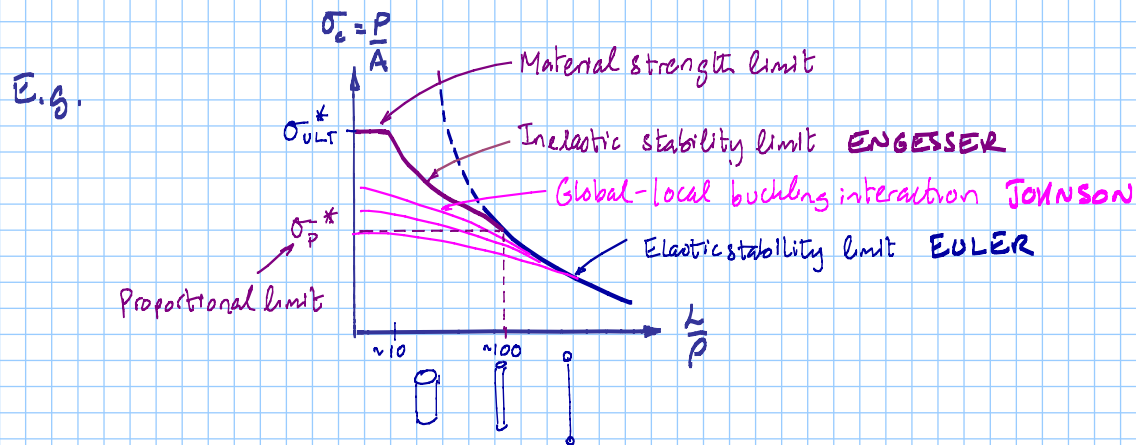 σc = P/A
E.g.
Material strength limit
σULT*
Inelastic stability limit ENGESSER
Global-local buckling interaction JOHNSON
σP*
Elastic stability limit EULER
Proportional limit
L/ρ
~10
~100